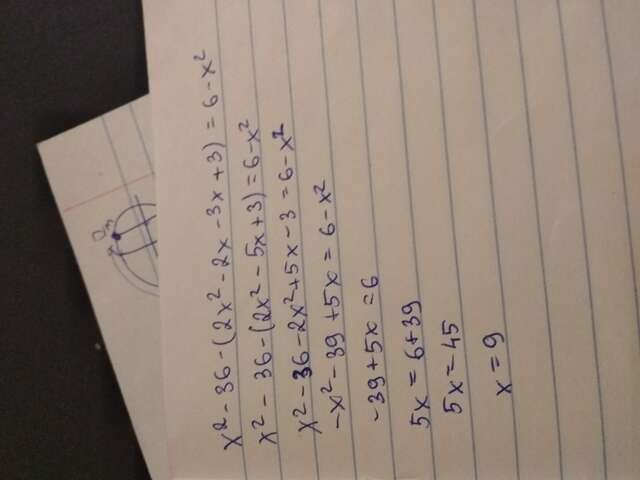 x² - 36 - (2x² - 2x - 3x + 3) = 6 - x²
x² - 36 - (2x² - 5x + 3) = 6 - x²
x² - 36 - 2x² + 5x - 3 = 6 - x²
-x² - 39 + 5x = 6 - x²
-39 + 5x = 6
5x = 6 + 39
5x = 45
x = 9